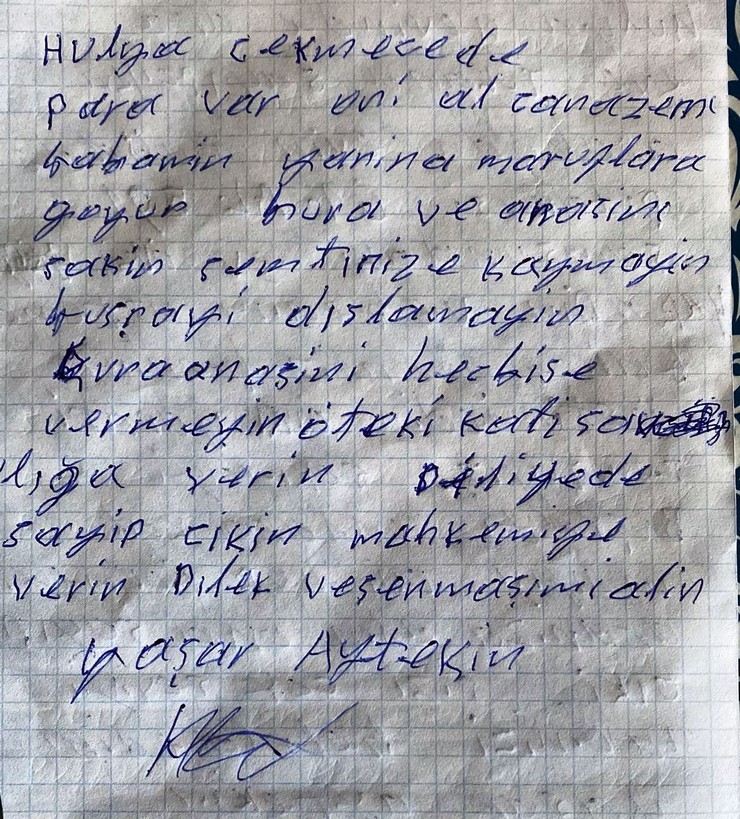 Hulya cekmecede
para var oni al canazemi
babamin yanina maruflara
goyun bura ve anasini
sakin semtinize kaymayin
kuşrayi dişlamayin
kuraanaşini hecbişe
vermeyin öteki kati sa
lığa verin Diliyede
sayip cikin mahkemiye
verin Dilek veşenmaşimi alin
yaşar Aytekin